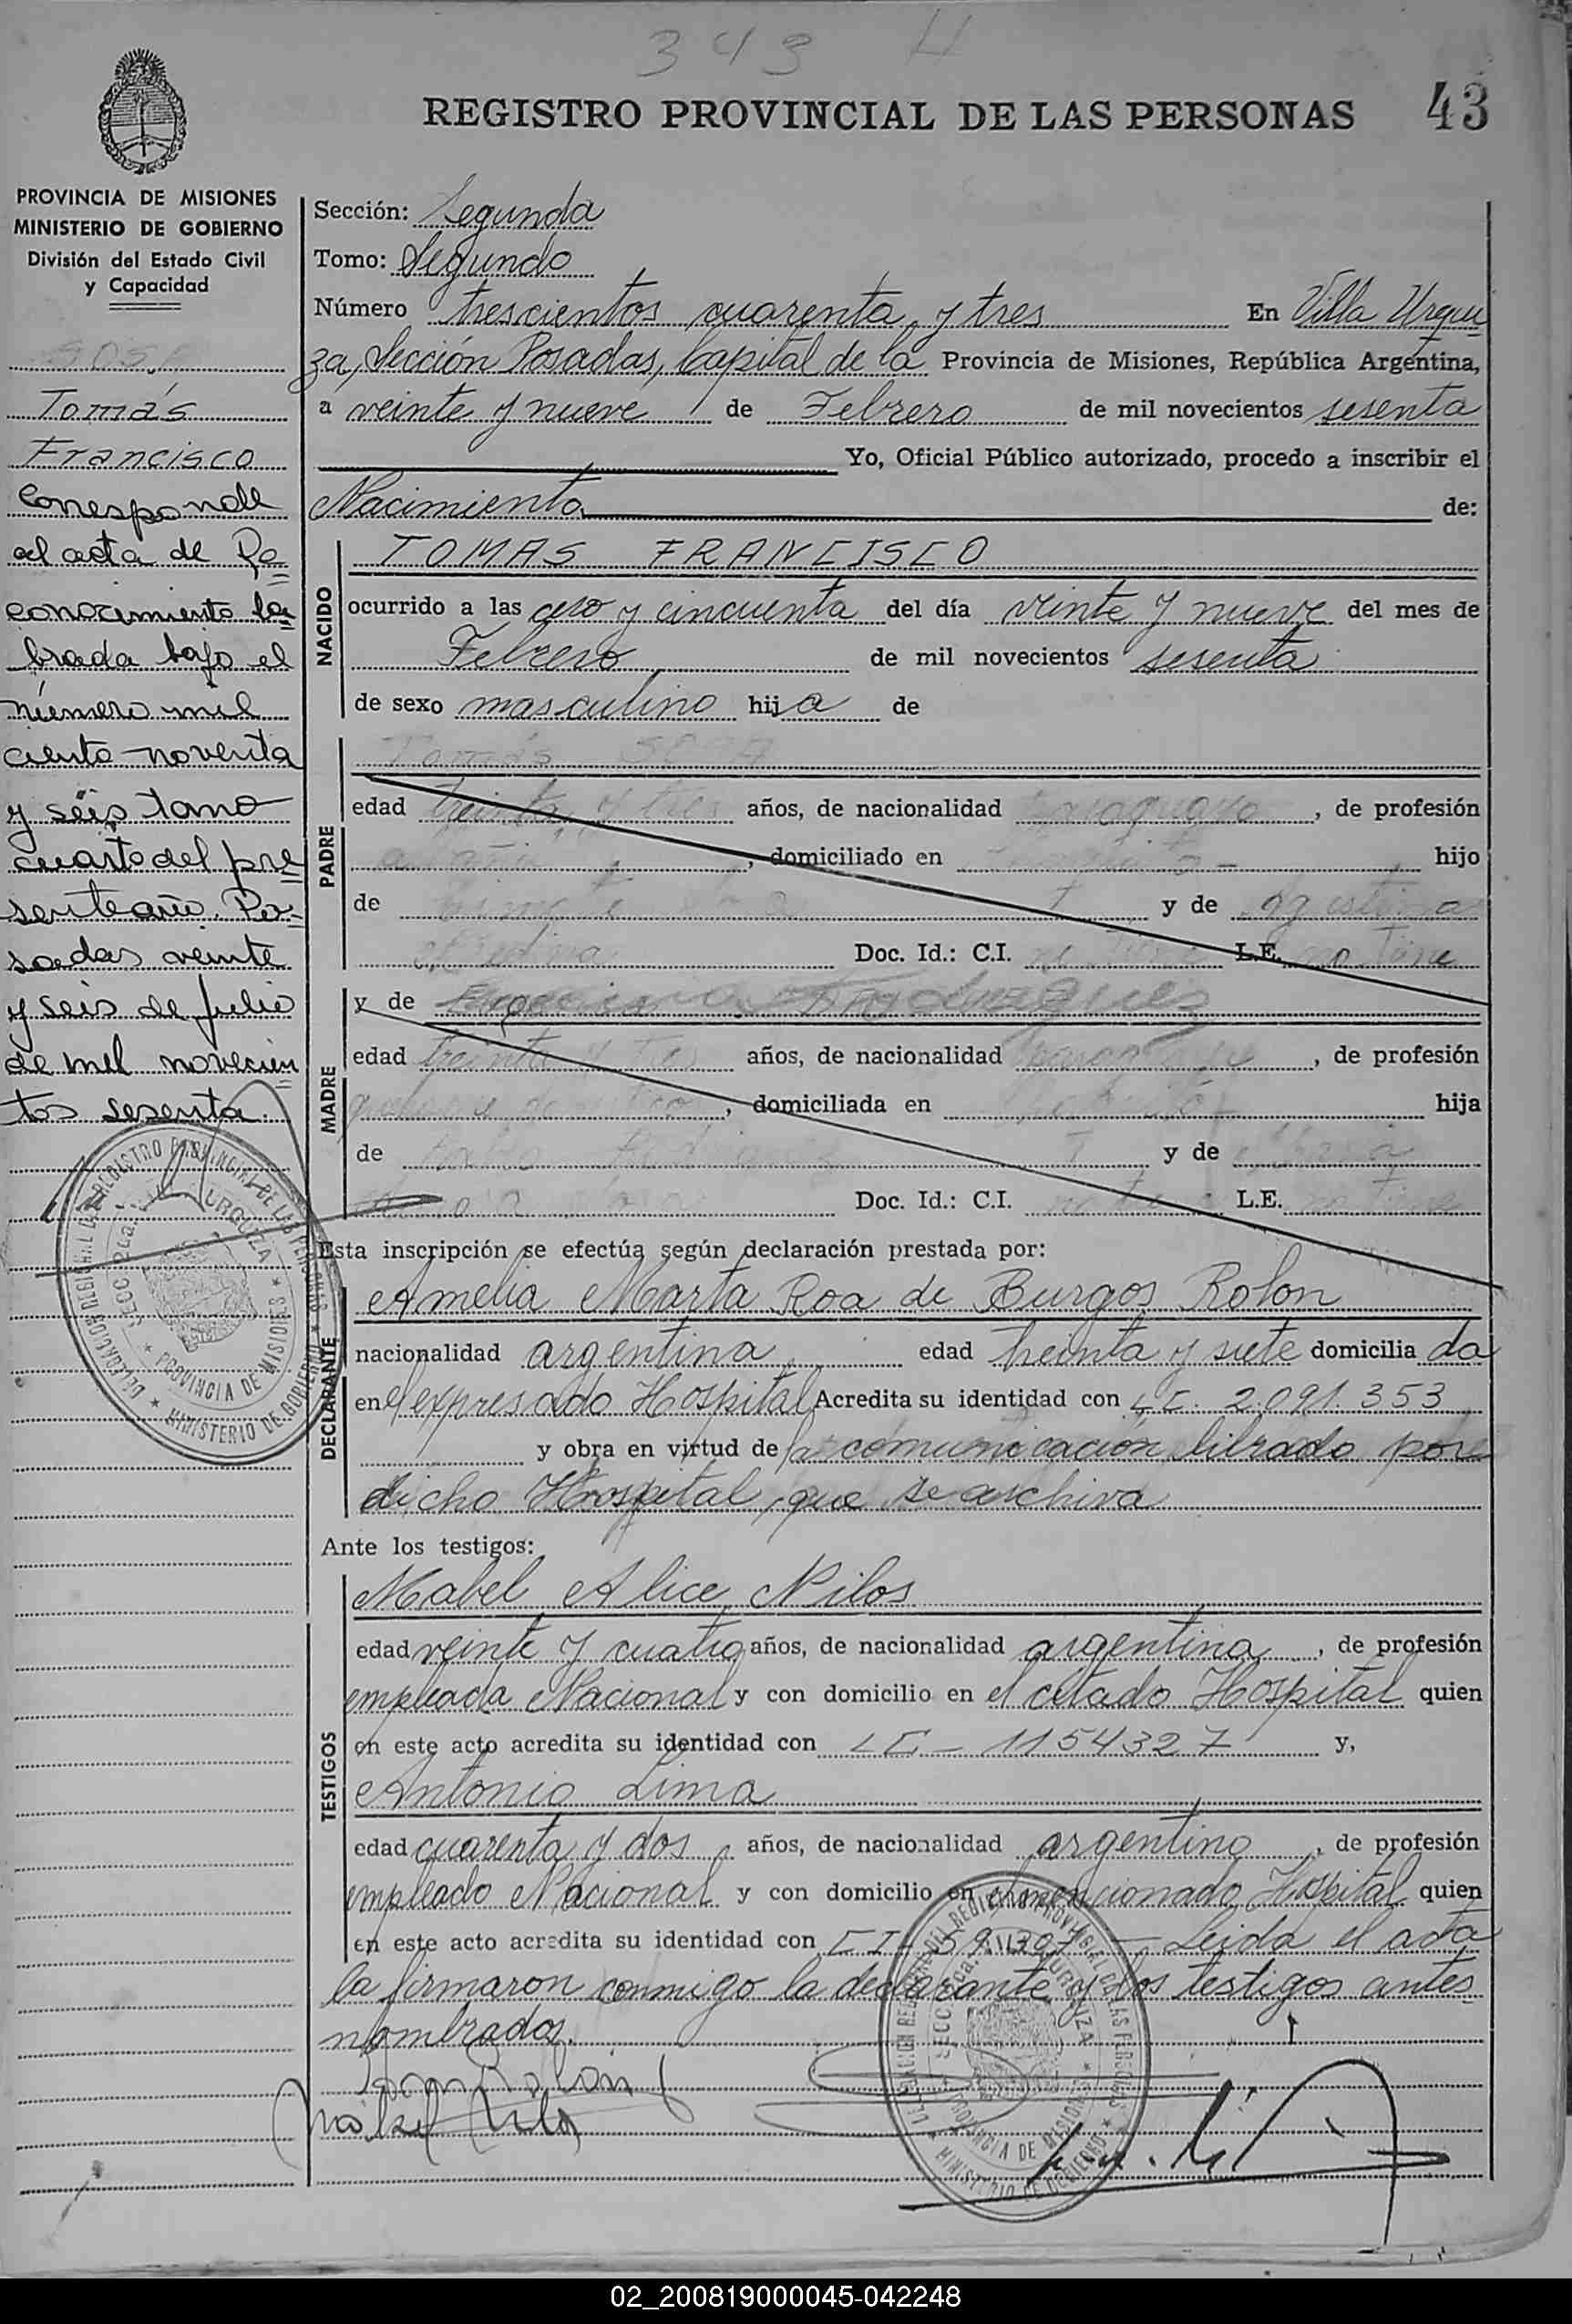 343 H
REGISTRO PROVINCIAL DE LAS PERSONAS 43
PROVINCIA DE MISIONES
MINISTERIO DE GOBIERNO
División del Estado Civil
y Capacidad
SOSA
Tomás
Francisco
Corresponde
al acta de Re=
conocimiento la=
brada bajo el
número mil
ciento noventa
y seis tomo
cuarto del pre=
sente año. Po=
sadas veinte
y seis de julio
de mil novecien=
tos sesenta.
Sección: Segunda
Tomo: Segundo
Número trescientos cuarenta y tres En Villa Urqui=
za, Sección Posadas, Capital de la Provincia de Misiones, República Argentina,
a veinte y nueve de Febrero de mil novecientos sesenta
Yo, Oficial Público autorizado, procedo a inscribir el
Nacimiento de:
NACIDO
TOMAS FRANCISCO
ocurrido a las cero y cincuenta del día veinte y nueve del mes de
Febrero de mil novecientos sesenta
de sexo masculino hij o de
PADRE
Tomás SOSA
edad treinta y tres años, de nacionalidad paraguayo, de profesión
, domiciliado en hijo
de y de Agustina
Doc. Id.: C.I. no tiene L.E. no tiene
MADRE
y de
edad treinta y tres años, de nacionalidad, de profesión
, domiciliada en hija
de y de
Doc. Id.: C.I. L.E. no tiene
Esta inscripción se efectúa según declaración prestada por:
DECLARANTE
Amelia Marta Roa de Burgos Rolon
nacionalidad argentina edad treinta y siete domicilia da
en el expresado Hospital Acredita su identidad con LC. 2.091.353
y obra en virtud de la comunicación librada por
dicho Hospital, que se archiva
Ante los testigos:
TESTIGOS
Mabel Alice Nilos
edad veinte y cuatro años, de nacionalidad argentina, de profesión
empleada Nacional y con domicilio en el citado Hospital quien
en este acto acredita su identidad con LC - 1154327 y,
Antonio Lima
edad cuarenta y dos años, de nacionalidad argentino, de profesión
empleado Nacional y con domicilio en el mencionado Hospital quien
en este acto acredita su identidad con CI - 59.307 - Leida el acta
la firmaron conmigo la declarante y los testigos antes
nombrados.
DELEGACION REGIONAL DEL REGISTRO PROVINCIAL DE LAS PERSONAS
SECC. 2da. VILLA URQUIZA
PROVINCIA DE MISIONES
MINISTERIO DE GOBIERNO
02_200819000045-042248